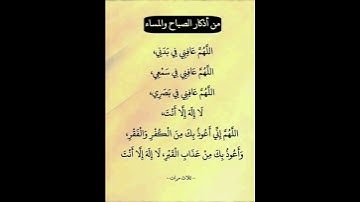 من أذكار الصباح والمساء
اللَّهُمَّ عَافِنِي فِي بَدَنِي،
اللَّهُمَّ عَافِنِي فِي سَمْعِي،
اللَّهُمَّ عَافِنِي فِي بَصَرِي،
لَا إِلَهَ إِلَّا أَنْتَ،
اللَّهُمَّ إِنِّي أَعُوذُ بِكَ مِنَ الْكُفْرِ وَالْفَقْرِ،
وَأَعُوذُ بِكَ مِنْ عَذَابِ الْقَبْرِ، لَا إِلَهَ إِلَّا أَنْتَ
- ثلاث مرات -